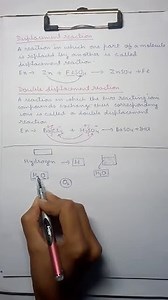 Displacement reaction
A reaction in which one part of a molecule
is replaced by another is called
displacement reaction
Ex → Zn + FeSO4 → ZnSO4 + Fe
Double displacement reaction
A reaction in which the two
compounds exchange their corresponding
ions is called a double displacement
reaction
Ex → + → BaSO4 +
Hydrogen → H
H2O
O2
H2O